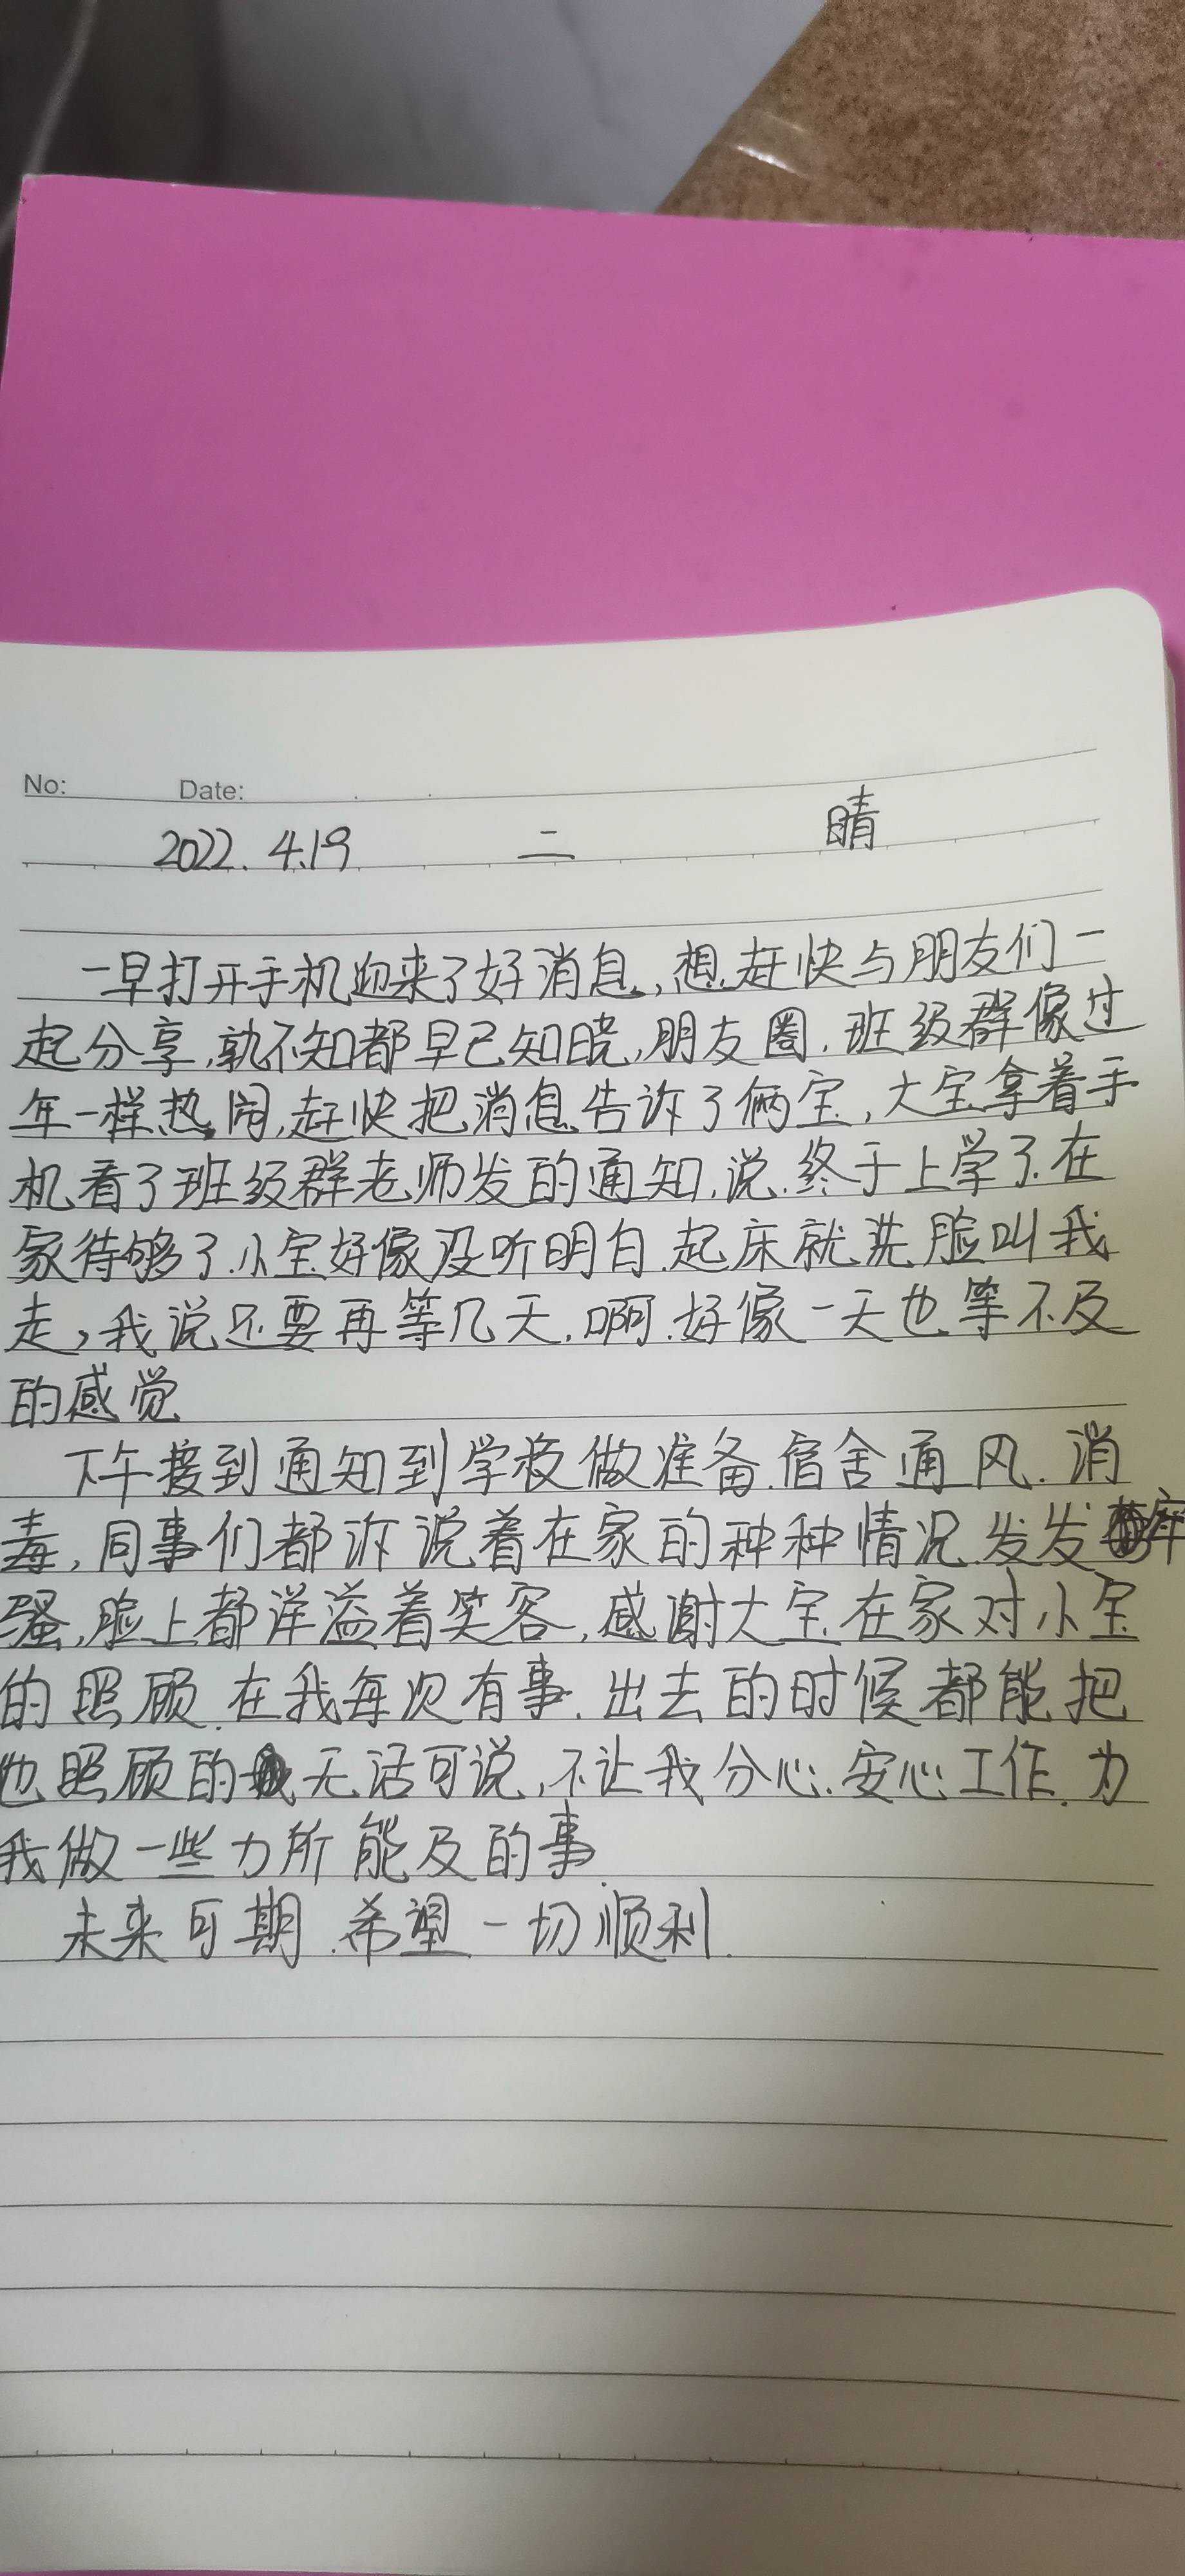 No: Date:
2022.4.19 二 晴
一早打开手机迎来了好消息,想赶快与朋友们一
起分享,孰不知都早已知晓,朋友圈.班级群像过
年一样热闹,赶快把消息告诉了俩宝,大宝拿着手
机看了班级群老师发的通知,说.终于上学了.在
家待够了.小宝好像没听明白.起床就洗脸叫我
走,我说还要再等几天.啊.好像一天也等不及
的感觉
下午接到通知到学校做准备.宿舍通风.消
毒,同事们都诉说着在家的种种情况.发发牢
骚,脸上都洋溢着笑容,感谢大宝在家对小宝
的照顾.在我每次有事.出去的时候都能把
他照顾的无话可说,不让我分心.安心工作.为
我做一些力所能及的事.
未来可期.希望一切顺利.